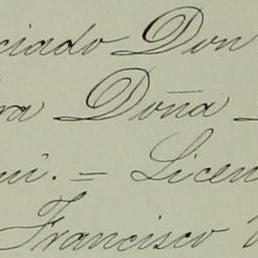 ciado Don
ra Doña
uí. = Licen
Francisco